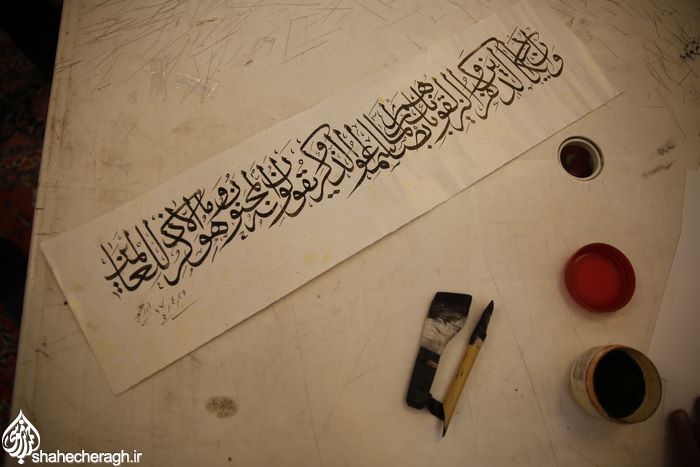 وإن يكاد الذين كفروا ليزلقونك بأبصارهم لما سمعوا الذكر ويقولون إنه لمجنون وما هو إلا ذكر للعالمين
shahecheragh.ir